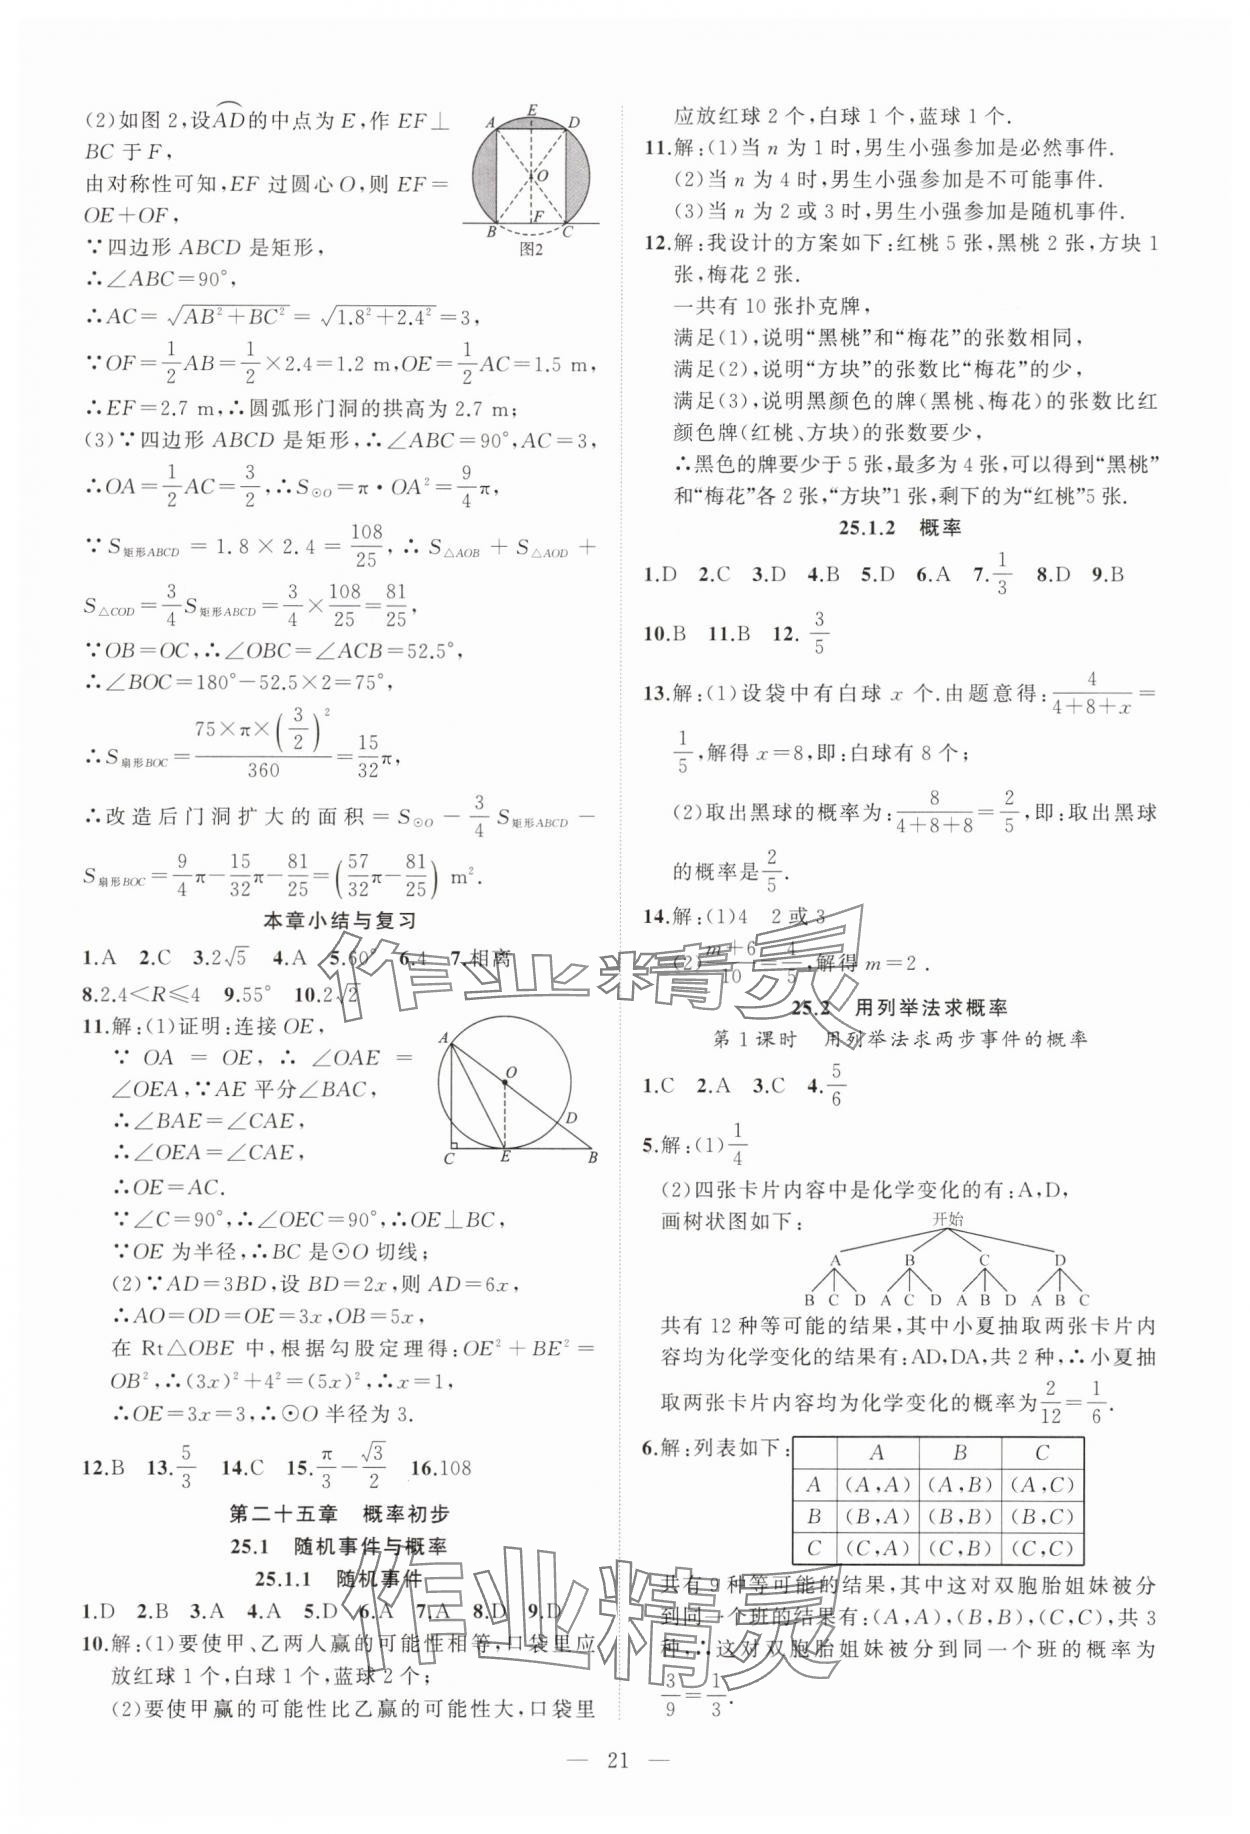 (2)如图2,设AD的中点为E,作EF⊥
BC于F,
由对称性可知,EF过圆心O,则EF=
OE+OF,
∵四边形ABCD是矩形,
∴∠ABC=90°,
∴AC=√(AB²+BC²)=√(1.8²+2.4²)=3,
∵OF=1/2AB=1/2×2.4=1.2 m,OE=1/2AC=1.5 m,
∴EF=2.7 m,∴圆弧形门洞的拱高为2.7 m;
(3)∵四边形ABCD是矩形,∴∠ABC=90°,AC=3,
∴OA=1/2AC=3/2,∴S⊙O=π·OA²=9/4π,
∵S矩形ABCD=1.8×2.4=108/25,∴S△AOB+S△AOD+
S△COD=3/4S矩形ABCD=3/4×108/25=81/25,
∵OB=OC,∴∠OBC=∠ACB=52.5°,
∴∠BOC=180°-52.5×2=75°,
∴S扇形BOC=75×π×(3/2)²/360=15/32π,
∴改造后门洞扩大的面积=S⊙O-3/4S矩形ABCD-
S扇形BOC=9/4π-15/32π-81/25=(57/32π-81/25) m².
A E D
O
B F C
图2
本章小结与复习
1.A 2.C 3.2√5 4.A 5.60° 6.4 7.相离
8.2.4<R≤4 9.55° 10.2√2
11.解:(1)证明:连接OE,
∵OA=OE,∴∠OAE=
∠OEA,∵AE平分∠BAC,
∴∠BAE=∠CAE,
∴∠OEA=∠CAE,
∴OE=AC.
∵∠C=90°,∴∠OEC=90°,∴OE⊥BC,
∵OE为半径,∴BC是⊙O切线;
(2)∵AD=3BD,设BD=2x,则AD=6x,
∴AO=OD=OE=3x,OB=5x,
在Rt△OBE中,根据勾股定理得:OE²+BE²=
OB²,∴(3x)²+4²=(5x)²,∴x=1,
∴OE=3x=3,∴⊙O半径为3.
A
O
D
C E B
12.B 13.5/3 14.C 15.π/3-√3/2 16.108
第二十五章 概率初步
25.1 随机事件与概率
25.1.1 随机事件
1.D 2.B 3.A 4.A 5.D 6.A 7.A 8.D 9.D
10.解:(1)要使甲、乙两人赢的可能性相等,口袋里应
放红球1个,白球1个,蓝球2个;
(2)要使甲赢的可能性比乙赢的可能性大,口袋里
应放红球2个,白球1个,蓝球1个.
11.解:(1)当n为1时,男生小强参加是必然事件.
(2)当n为4时,男生小强参加是不可能事件.
(3)当n为2或3时,男生小强参加是随机事件.
12.解:我设计的方案如下:红桃5张,黑桃2张,方块1
张,梅花2张.
一共有10张扑克牌,
满足(1),说明“黑桃”和“梅花”的张数相同,
满足(2),说明“方块”的张数比“梅花”的少,
满足(3),说明黑颜色的牌(黑桃、梅花)的张数比红
颜色牌(红桃、方块)的张数要少,
∴黑色的牌要少于5张,最多为4张,可以得到“黑桃”
和“梅花”各2张,“方块”1张,剩下的为“红桃”5张.
25.1.2 概率
1.D 2.C 3.D 4.B 5.D 6.A 7.1/3 8.D 9.B
10.B 11.B 12.3/5
13.解:(1)设袋中有白球x个.由题意得:4/(4+8+x)=
1/5,解得x=8,即:白球有8个;
(2)取出黑球的概率为:8/(4+8+8)=2/5,即:取出黑球
的概率是2/5.
14.解:(1)4 2或3
(2)(m+6)/10=4/5,解得m=2.
25.2 用列举法求概率
第1课时 用列举法求两步事件的概率
1.C 2.A 3.C 4.5/6
5.解:(1)1/4
(2)四张卡片内容中是化学变化的有:A,D,
画树状图如下:
开始
A B C D
B C D A C D A B D A B C
共有12种等可能的结果,其中小夏抽取两张卡片内
容均为化学变化的结果有:AD,DA,共2种,∴小夏抽
取两张卡片内容均为化学变化的概率为2/12=1/6.
6.解:列表如下:
A B C
A (A,A) (A,B) (A,C)
B (B,A) (B,B) (B,C)
C (C,A) (C,B) (C,C)
共有9种等可能的结果,其中这对双胞胎姐妹被分
到同一个班的结果有:(A,A),(B,B),(C,C),共3
种,∴这对双胞胎姐妹被分到同一个班的概率为
3/9=1/3.
— 21 —
作业精灵
作业精灵